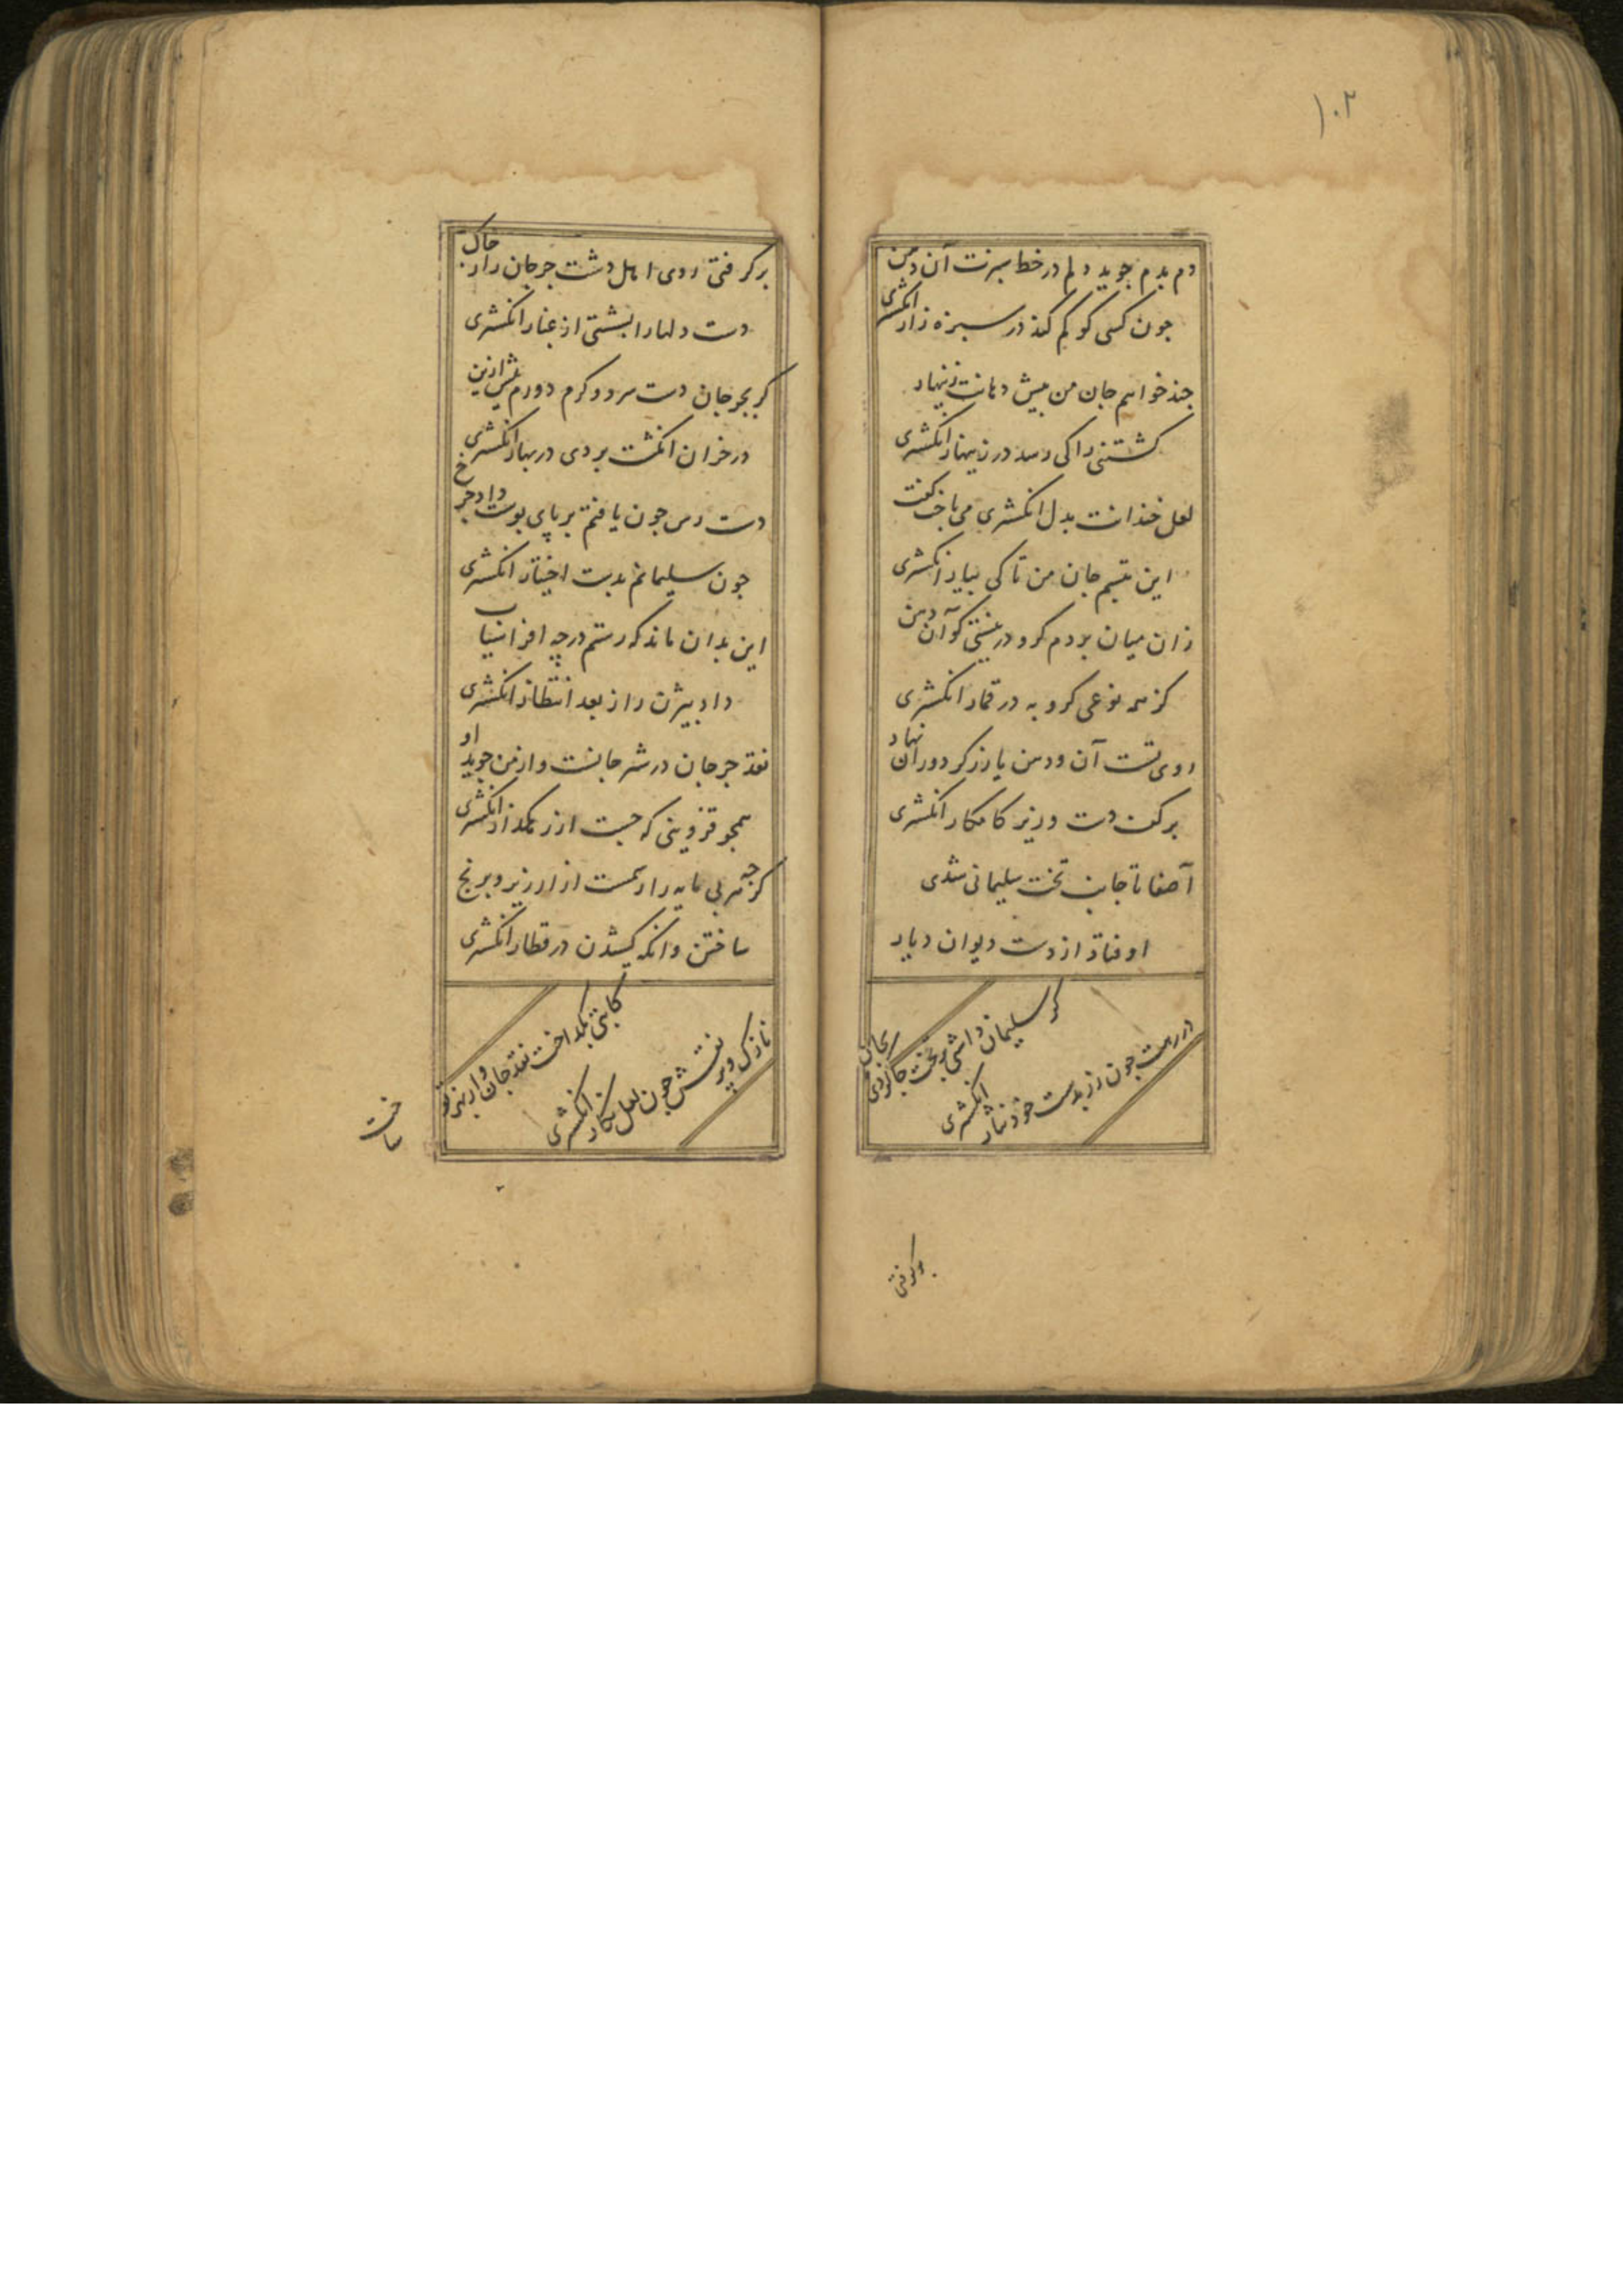 ۱۰۲
دم بدم جوید دلم در خط سبزت آن دهن
جون کسی کو کم کند در سبزه زار انکشتری
جند خواهم جان من بیش دهانت زینهار
کشتنی را کی رسد در زینهار انکشتری
لعل خندانت بدل انکشتری می باخت کفت
این تبسم جان من تا کی بیار انکشتری
زان میان بردم کرو در نیستی کو آن دهن
کز همه نوعی کرو به در قمار انکشتری
روی تست آن و دهن یا زرکر دوران نهاد
بر کف دست وزیر کامکار انکشتری
آصفا تا جانب تخت سلیمانی شدی
اوفتاد از دست دیوان دیار
کر سلیمان داشتی بر تخت جا کردی بجان
در رهت جون زر بدست خود نثار انکشتری
برکرفتی
برکرفتی روی اهل دشت جرجان را ز خاک
دست دلها را بشستی از غبار انکشتری
کر بجرجان دست سرد و کرم دورم بیش ازین
در خزان انکشت بردی در بهار انکشتری
دست رس جون یافتم بر پای بوست داد جرخ
جون سلیمانم بدست اختیار انکشتری
این بدان ماند که رستم در چه افراسیاب
داد بیژن را ز بعد انتظار انکشتری
نقد جرجان در شهر جانست و از من جوید او
همجو قزوینی که جست از زنکدار انکشتری
کرجه هر بی مایه را رسمست از ارزیز و برنج
ساختن وانکه کشیدن در قطار انکشتری
کاتبی بکداخت نقد جان و از بهر تو
نازک و پر نقش جون لعل نکار انکشتری
ساخت